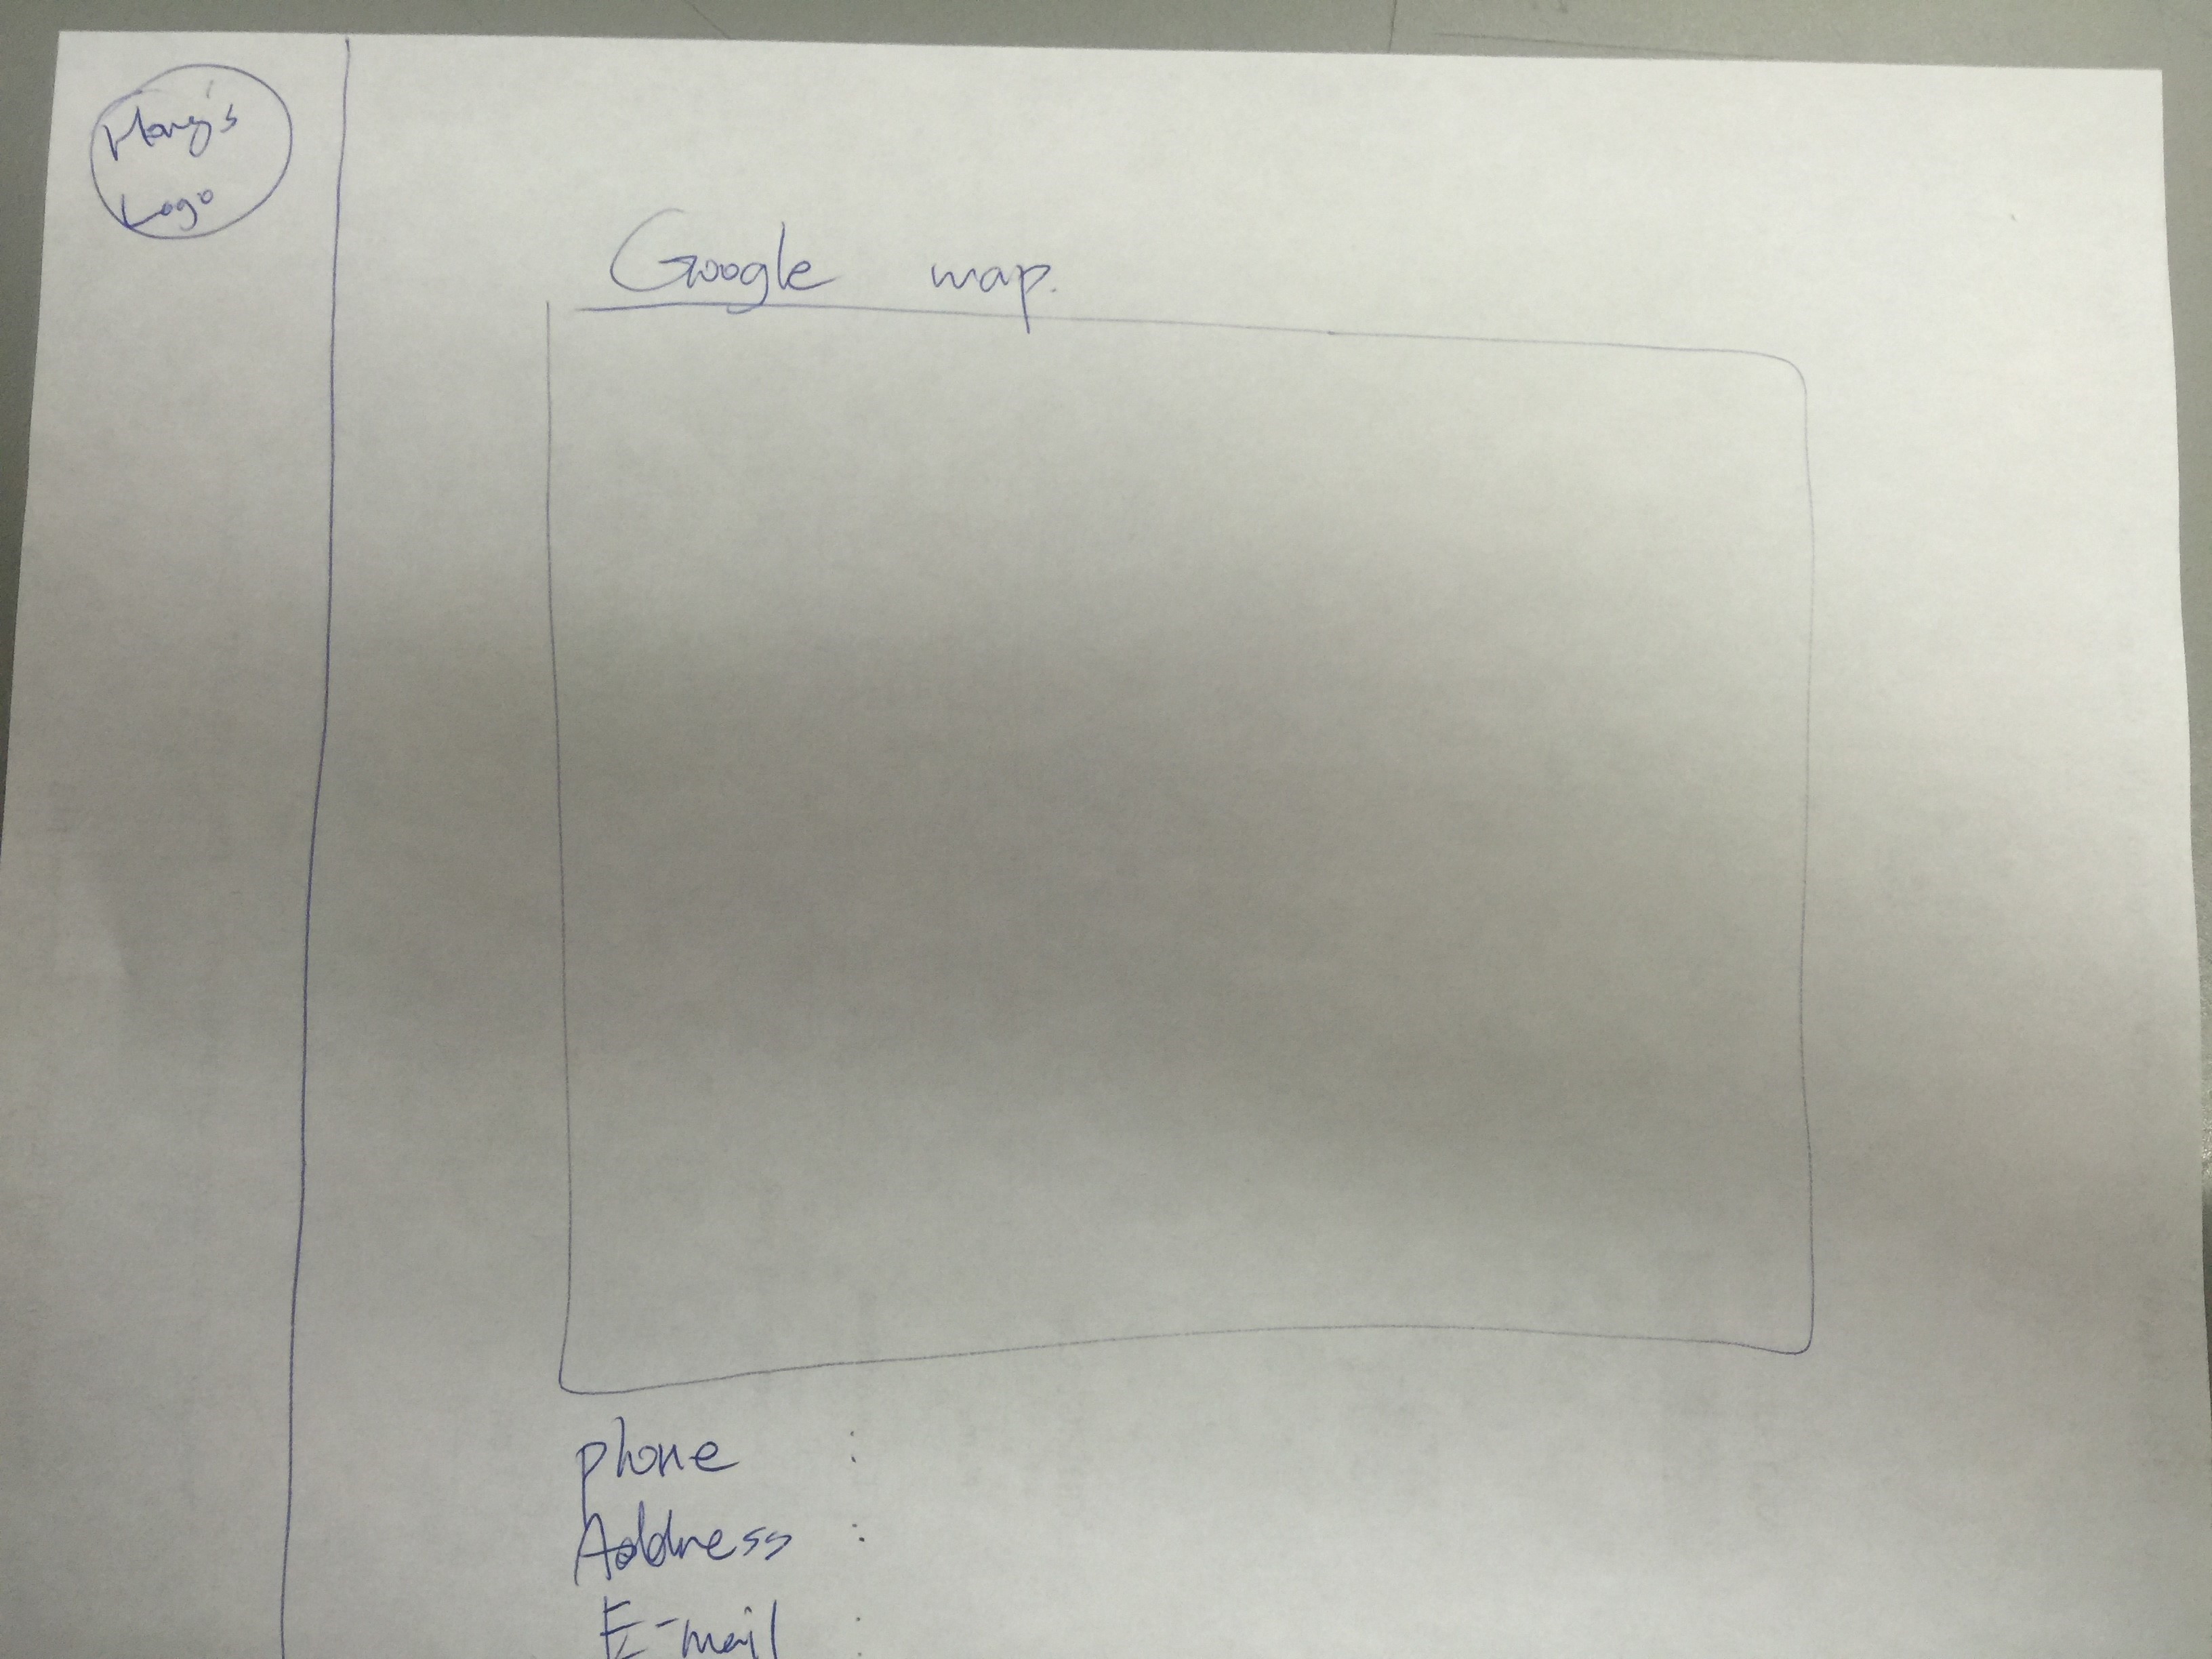 Hong's
Logo
Google map.
phone :
Address :
E-mail :